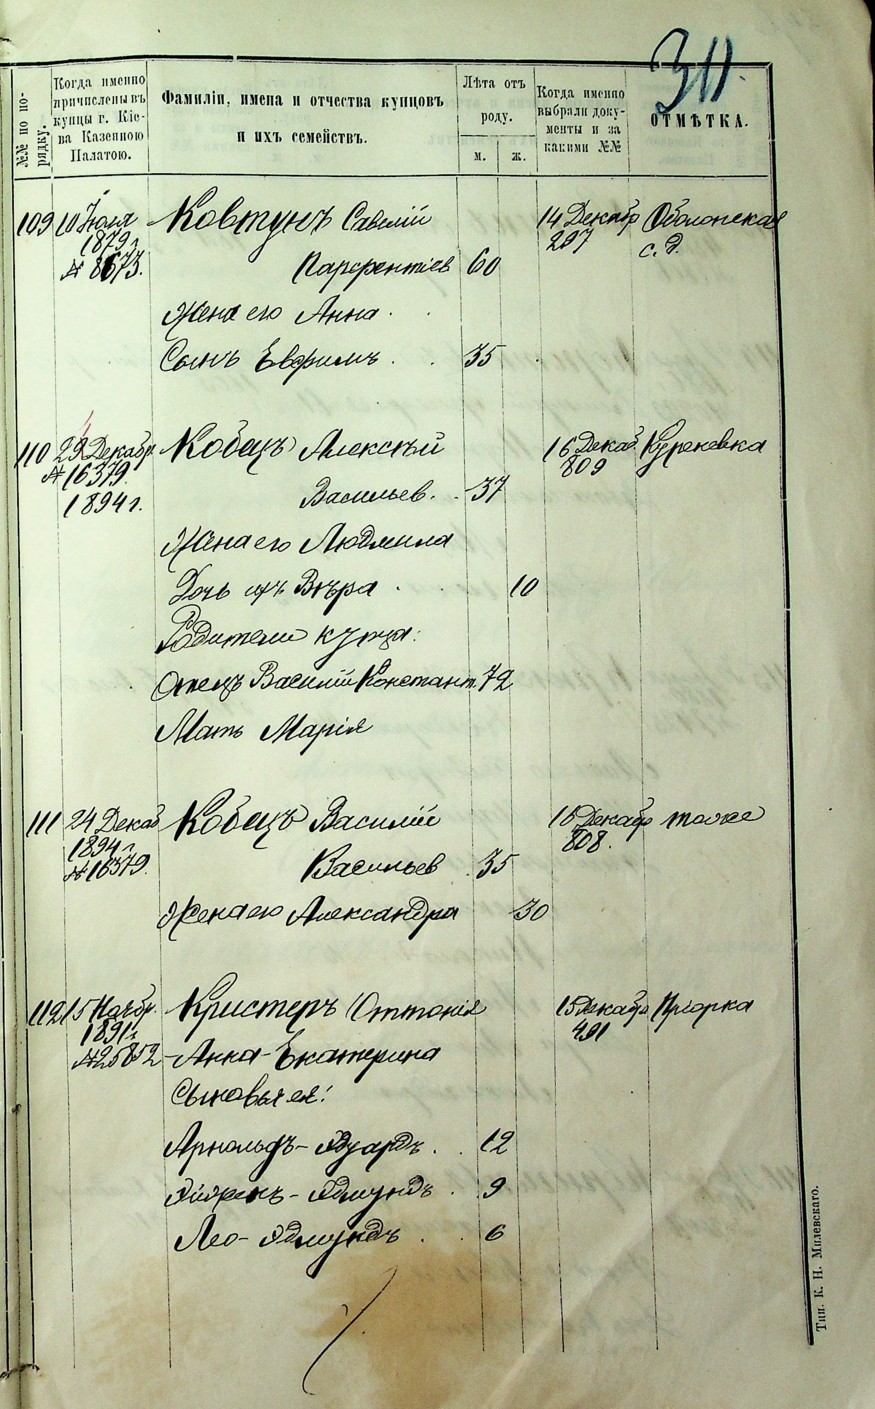 311.
№№ по по-
рядку.
Когда именно
причислены въ
купцы г. Кіе-
ва Казенною
Палатою.
Фамиліи, имена и отчества купцовъ
и ихъ семействъ.
Лѣта отъ
роду.
м. ж.
Когда именно
выбрали доку-
менты и за
какими №№
ОТМѢТКА.
109 10 Іюля Ковтунъ Савелій 14 Декабр Оболонская
1879 г. 297 с. д.
№ 8673. Парфентіев 60
Жена его Анна
Сынъ Евфимъ 35
110 Декабр Кобецъ Алексѣй 16 Декаб Куреневка
№ 16379. 809
1894 г. Васильев. 37
Жена его Людмила
Дочь ихъ Вѣра 10
Родители купца:
Отецъ Василій Констант. 72
Мать Марія
111 24 Декаб Кобецъ Василій 16 Декабр тоже
1894 г. 808.
№ 16379. Васильев 35
Жена его Александра 30
112 15 Ноябр. Кристеръ Оттонія 15 Декабр Пріорка
1891 г. 491
№ 25852 Анна-Екатерина
Сыновья ея:
Арнольдъ-Эдуардъ. 12
Эдмундъ 9
Лео-Эдмундъ 6
Тип. К. Н. Милевскаго.